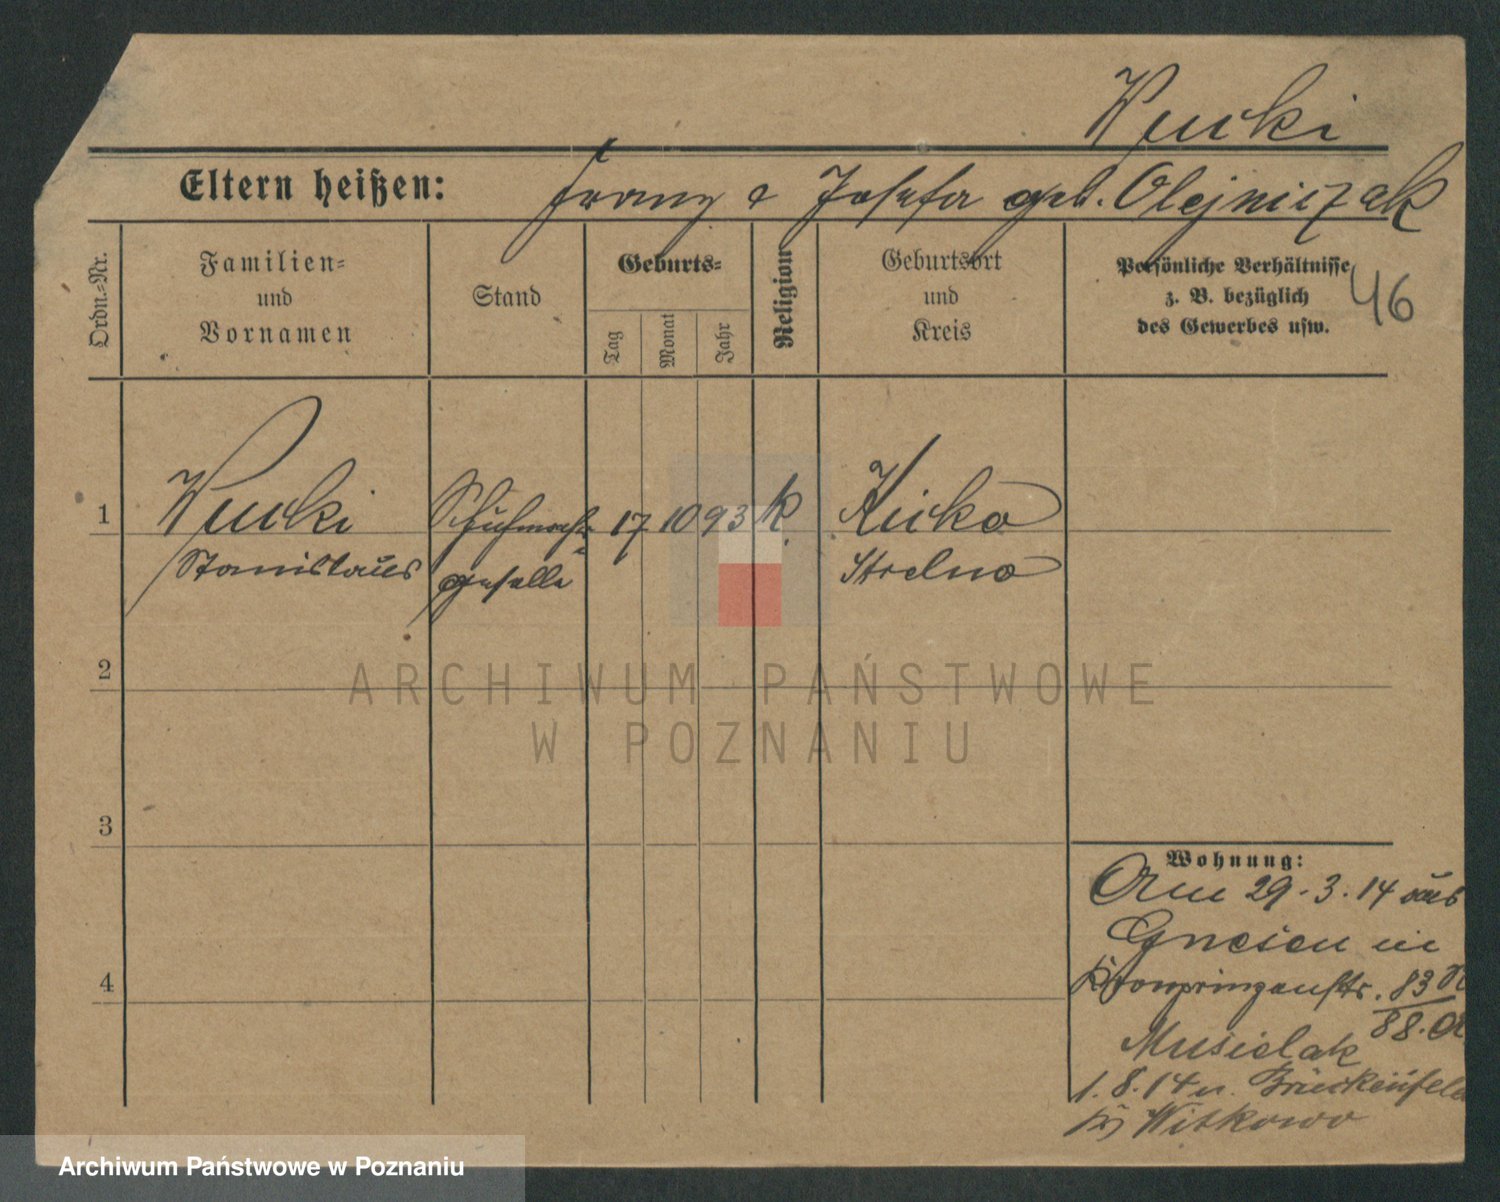 Wucki
Eltern heißen: Franz & Josefa geb. Olejniczak
Ordn.=Nr.
Familien=
und
Vornamen
Stand
Geburts=
Tag
Monat
Jahr
Religion
Geburtsort
und
Kreis
Persönliche Verhältnisse
z. B. bezüglich
des Gewerbes usw.
46
1
Wucki
Stanislaus
Schuhmacher
geselle
17 10 93
k.
Strelno
2
3
4
Wohnung:
Am 29.3.14 aus
Gnesen in
Kronprinzenstr. 83
88.
Musielak
1.8.14 n. Brückenfeld
Witkowo
ARCHIWUM PAŃSTWOWE
W POZNANIU
Archiwum Państwowe w Poznaniu